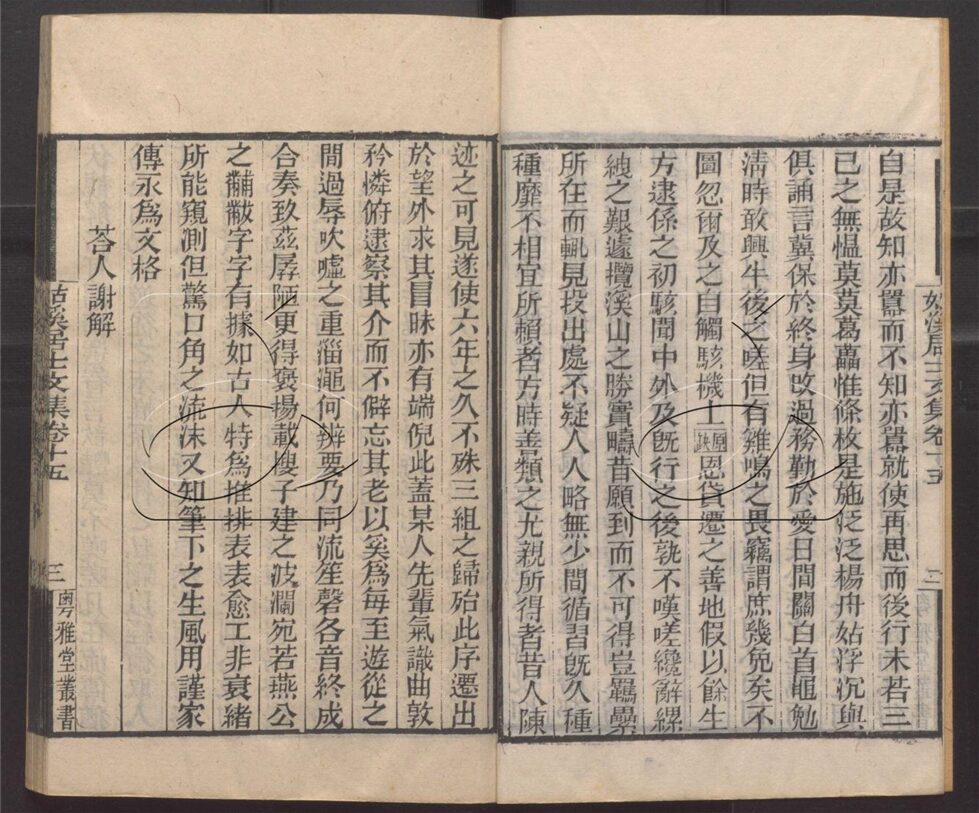 自是故知亦囂而不知亦囂就使再思而後行未若三
已之無慍莫莫葛藟惟條枚是施泛泛楊舟姑浮沉與
俱誦言冀保於終身改過務勤於愛日間關白首黽勉
清時敢興牛後之嗟但有雞鳴之畏竊謂庶幾免矣不
圖忽爾及之自觸駭機上原缺恩貸遷之善地假以餘生
方逮係之初駭聞中外及旣行之後孰不嘆嗟纔辭縲
絏之艱遽攬溪山之勝實疇昔願到而不可得豈羈纍
所在而輒見投出處不疑人人略無少間循習旣久種
種靡不相宜所賴者方時善類之尤親所得者昔人陳
姑溪居士文集卷十五
二
迹之可見遂使六年之久不殊三組之歸殆此序遷出
於望外求其冒昧亦有端倪此蓋某人先輩氣識曲敦
矜憐俯逮察其介而不僻忘其老以奚爲每至遊從之
間過辱吹噓之重淄澠何辨要乃同流笙磬各音終成
合奏致茲孱陋更得褒揚載搜子建之波瀾宛若燕公
之黼黻字字有據如古人特爲推排表表愈工非衰緒
所能窺測但驚口角之流沫又知筆下之生風用謹家
傳永爲文格
荅人謝解
姑溪居士文集卷十五
三
粵雅堂叢書